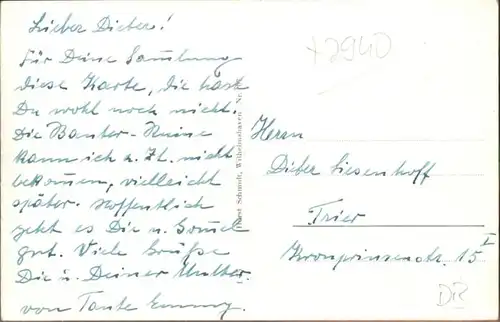 Lieber Dieter!
Für Deine Sammlung
diese Karte, die hast
Du wohl noch nicht.
Die Banter-Ruine
kann ich z. Zt. nicht
bekommen, vielleicht
später. Hoffentlich
geht es Dir u.
gut. Viele Grüße
Dir u. Deiner Mutter.
von Tante Emmy.
Schmidt, Wilhelmshaven Nr.
+2940
Herrn
Dieter Liesenhoff
Trier
Kronprinzenstr. 15 I